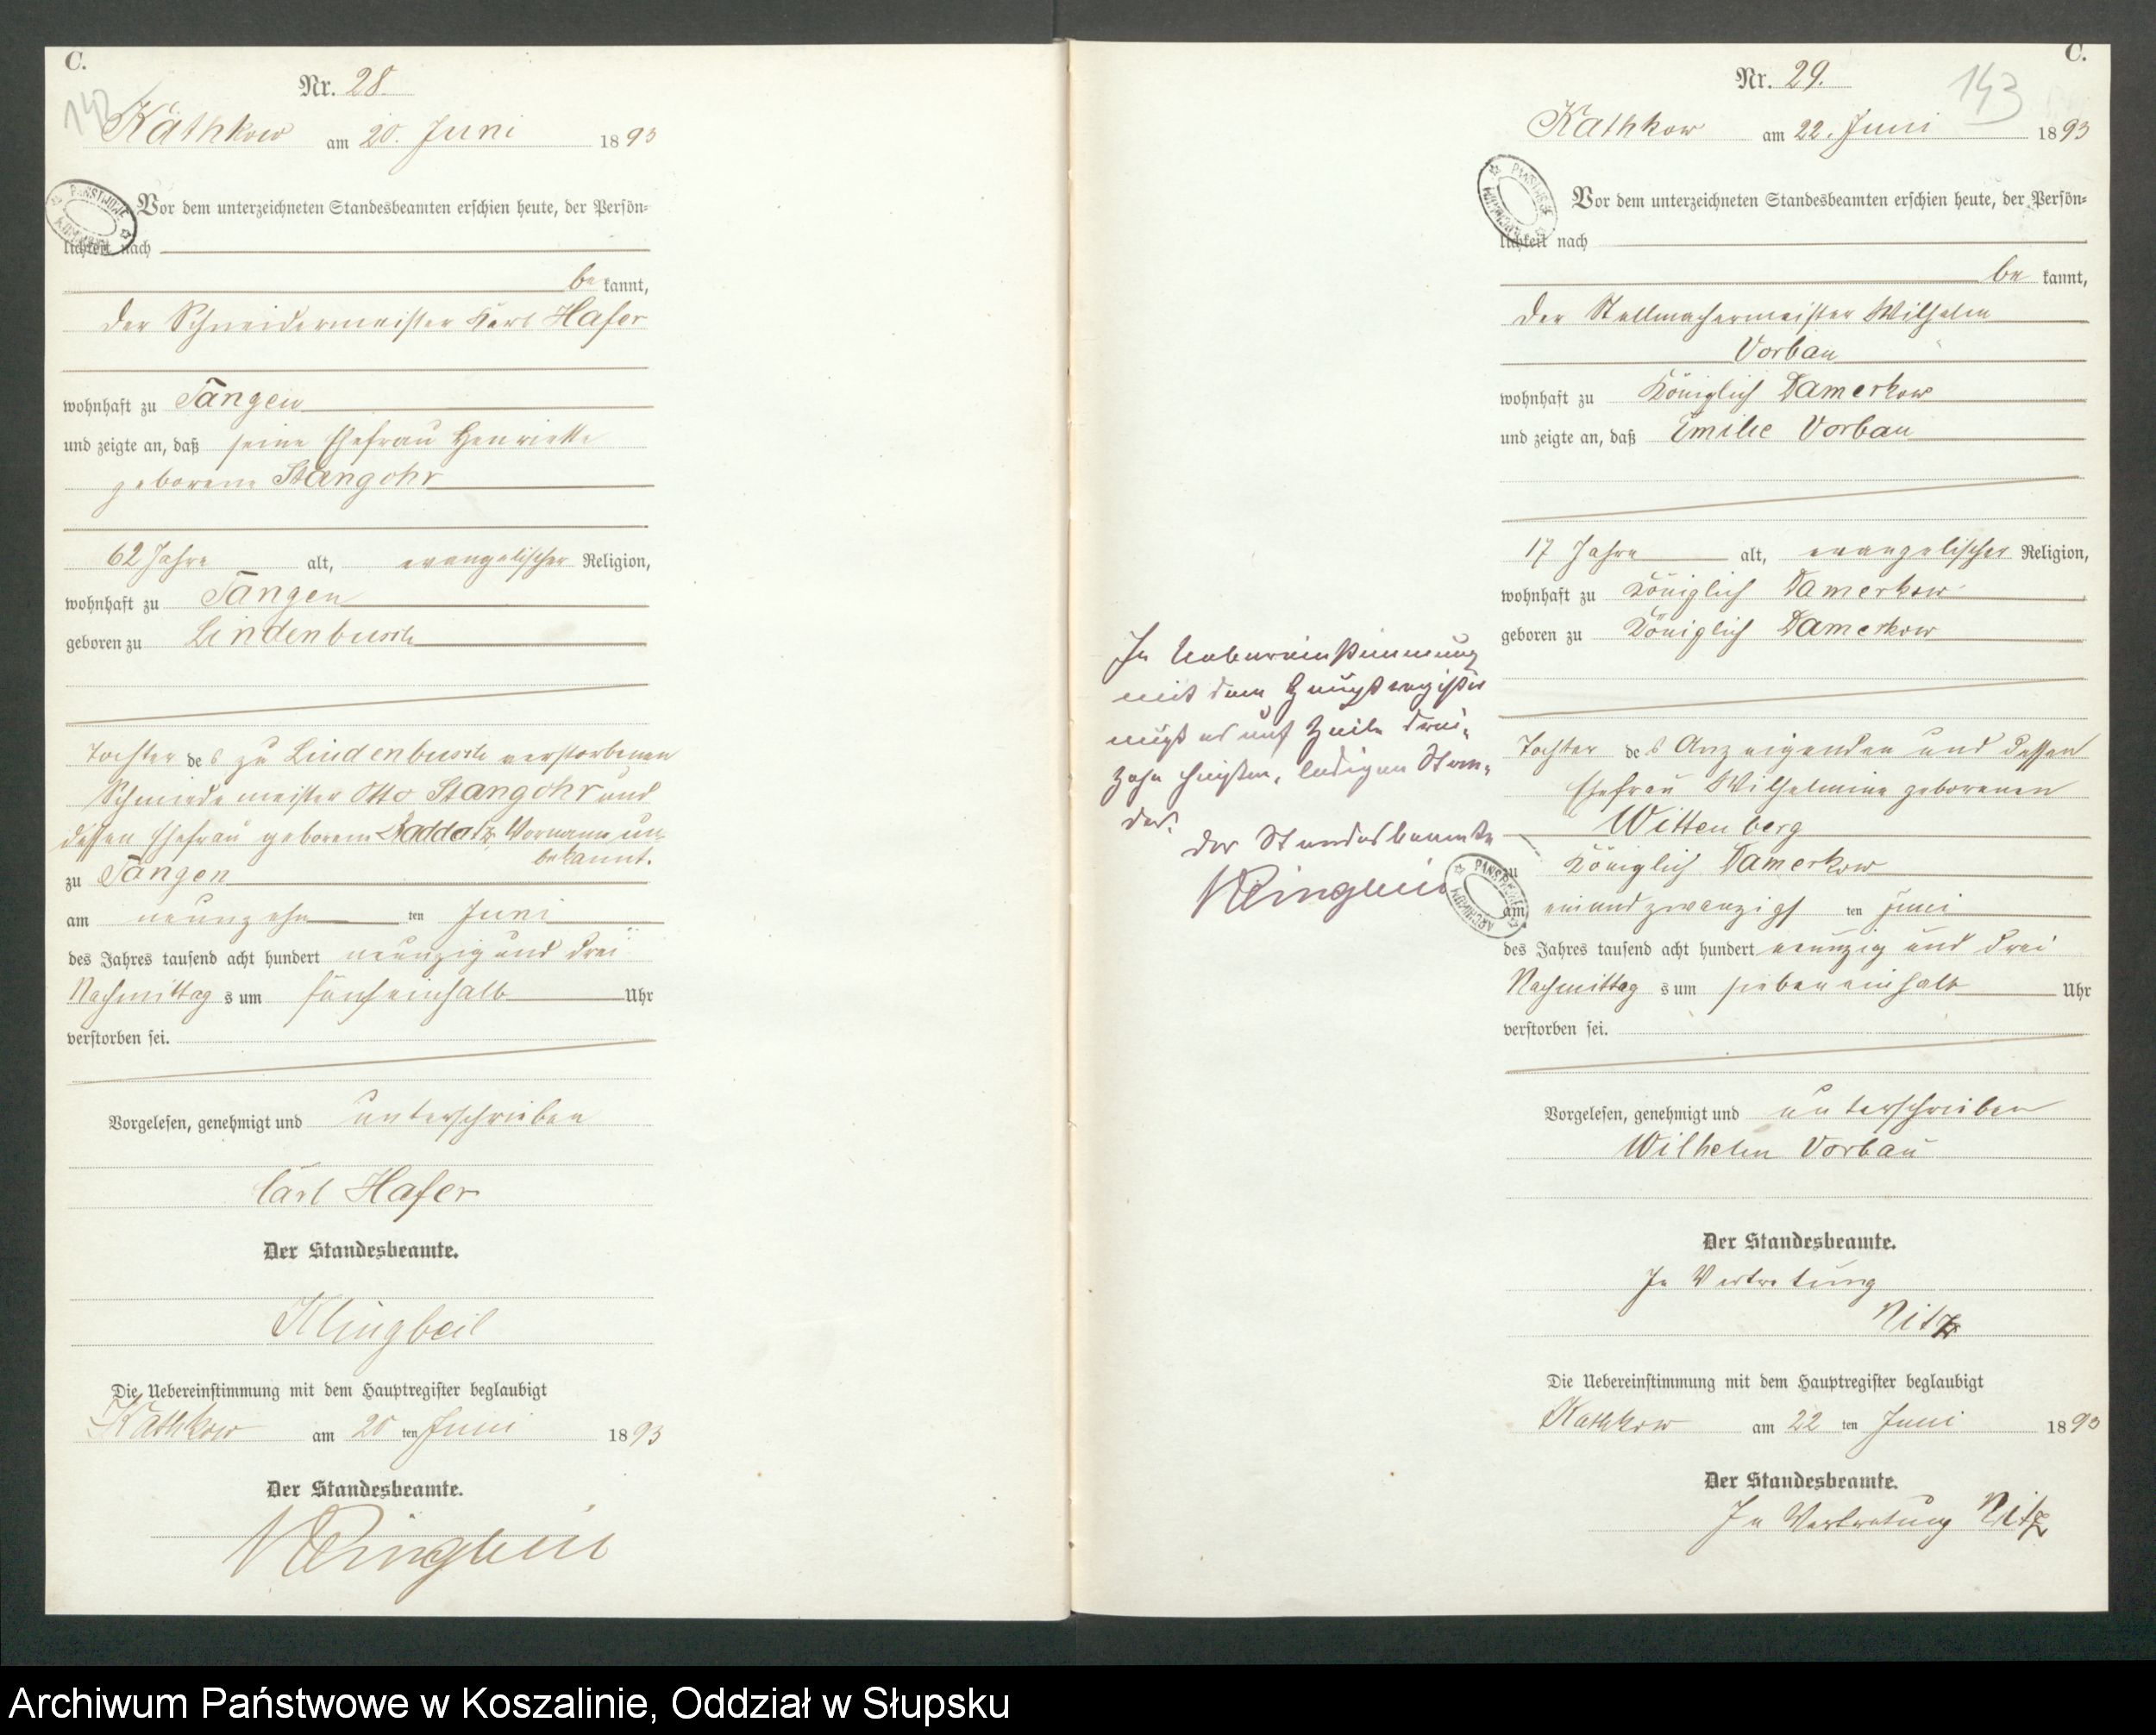 C.
Nr. 28.
142
Käthkow am 20. Juni 1893
PAŃSTWOWE
ARCHIWUM
Vor dem unterzeichneten Standesbeamten erschien heute, der Persön-
lichkeit nach
be kannt,
der Schneidermeister Karl Hafer
wohnhaft zu Tangen
und zeigte an, daß seine Ehefrau Henriette
geborene Stangohr
62 Jahre alt, evangelischer Religion,
wohnhaft zu Tangen
geboren zu Lindenbusch
Tochter des zu Lindenbusch verstorbenen
Schmiedemeister Otto Stangohr und
dessen Ehefrau geborene Raddatz, Vorname un-
bekannt.
zu Tangen
am neunzehnten Juni
des Jahres tausend acht hundert neunzig und drei
Nachmittags um fünfeinhalb Uhr
verstorben sei.
Vorgelesen, genehmigt und unterschrieben
Carl Hafer
Der Standesbeamte.
Klingbeil
Die Uebereinstimmung mit dem Hauptregister beglaubigt
Kathkow am 20ten Juni 1893
Der Standesbeamte.
Klingbeil
C.
Nr. 29.
143
Kathkow am 22. Juni 1893
PAŃSTWOWE
ARCHIWUM
Vor dem unterzeichneten Standesbeamten erschien heute, der Persön-
lichkeit nach
be kannt,
der Stellmachermeister Wilhelm
Vorbau
wohnhaft zu Königlich Damerkow
und zeigte an, daß Emilie Vorbau
17 Jahre alt, evangelischer Religion,
wohnhaft zu Königlich Damerkow
geboren zu Königlich Damerkow
Tochter des Anzeigenden und dessen
Ehefrau Wilhelmine geborenen
Wittenberg
zu Königlich Damerkow
am einundzwanzigsten Juni
des Jahres tausend acht hundert neunzig und drei
Nachmittags um siebeneinhalb Uhr
verstorben sei.
Vorgelesen, genehmigt und unterschrieben
Wilhelm Vorbau
Der Standesbeamte.
In Vertretung
Nitz
Die Uebereinstimmung mit dem Hauptregister beglaubigt
Kathkow am 22ten Juni 1893
Der Standesbeamte.
In Vertretung Nitz
In Uebereinstimmung
mit dem Hauptregister
muß es auf Zeile drei-
zehn heißen, ledigen Stan-
des.
Der Standesbeamte
Klingbeil
PAŃSTWOWE
ARCHIWUM
Archiwum Państwowe w Koszalinie, Oddział w Słupsku